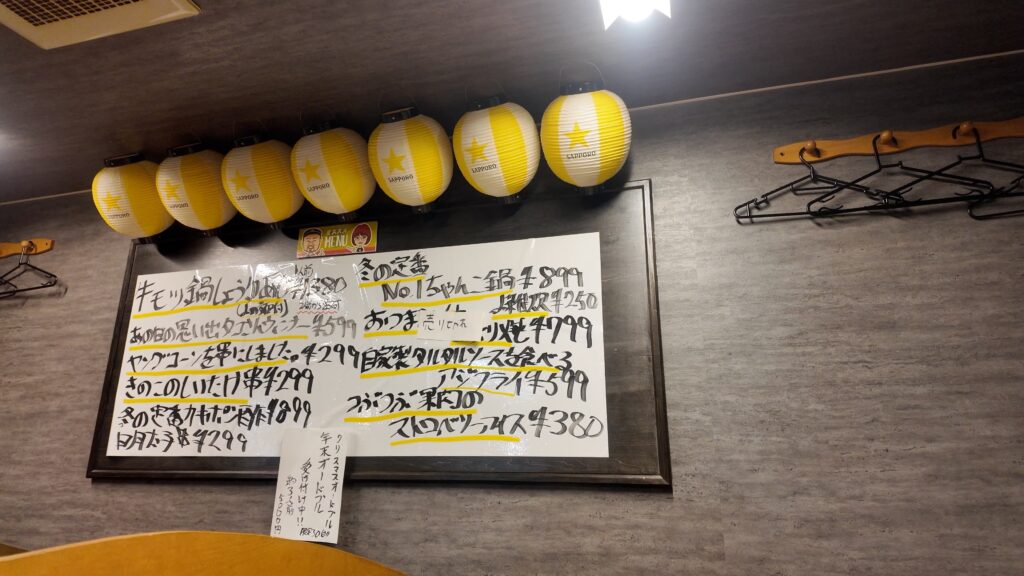 SAPPORO
SAPPORO
SAPPORO
SAPPORO
SAPPORO
SAPPORO
SAPPORO
オススメ
MENU
牛モツ鍋しょうゆ
1人前
あの日の思い出タコさんウィンナー ¥599
ヤングコーンを串にしました。¥299
きのこのしいたけ串¥299
冬の定番カキポン酢 ¥899
明太子 ¥299
冬の定番
No1ちゃんこ鍋 ¥899
¥250
おつま
売り切れ
り焼 ¥799
自家製タルタルソースを食べる
アジフライ ¥599
つぶつぶ果肉の
ストロベリーアイス ¥380
クリスマスオードブル
年末オードブル
受け付け中!!
約3人前
5500円